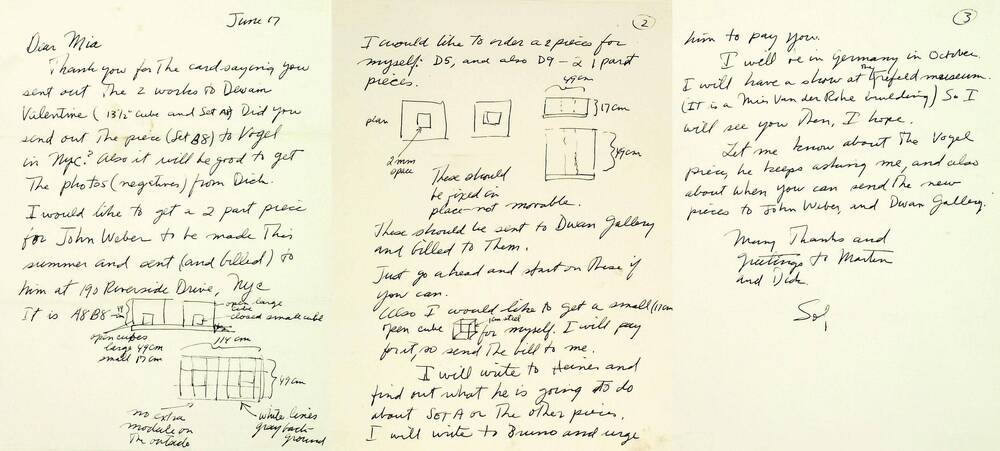 June 17
Dear Mia
Thank you for the card saying you
sent out the 2 works to Dewain
Valentine (13½" cube and Set A8) Did you
send out the piece (Set B8) to Vogel
in NYC? Also it will be good to get
the photos (negatives) from Dick.
I would like to get a 2 part piece
for John Weber to be made this
summer and sent (and billed) to
him at 190 Riverside Drive, NYC
It is A8B8
open large
cube
closed small cube
open cubes
large 49cm
small 17cm
114 cm
49cm
no extra
module on
the outside
white lines
gray back-
ground
2
I would like to order a 2 pieces for
myself: D5, and also D9 - 2 1 part
pieces.
49cm
plan
17cm
2mm
space
49cm
These should
be fixed in
place - not movable.
These should be sent to Dwan Gallery
and billed to them.
Just go ahead and start on these if
you can.
Also I would like to get a small (17cm
open cube for myself. I will pay
for it, so send the bill to me.
I will write to Heiner and
find out what he is going to do
about Set A or the other pieces.
I will write to Bruno and urge
3
him to pay you.
I will be in Germany in October.
I will have a show at the Krefeld museum.
(It is a Mies Van der Rohe building) So I
will see you then, I hope.
Let me know about the Vogel
piece, he keeps asking me, and also
about when you can send the new
pieces to John Weber, and Dwan Gallery.
Many Thanks and
greetings to Martin
and Dick.
Sol